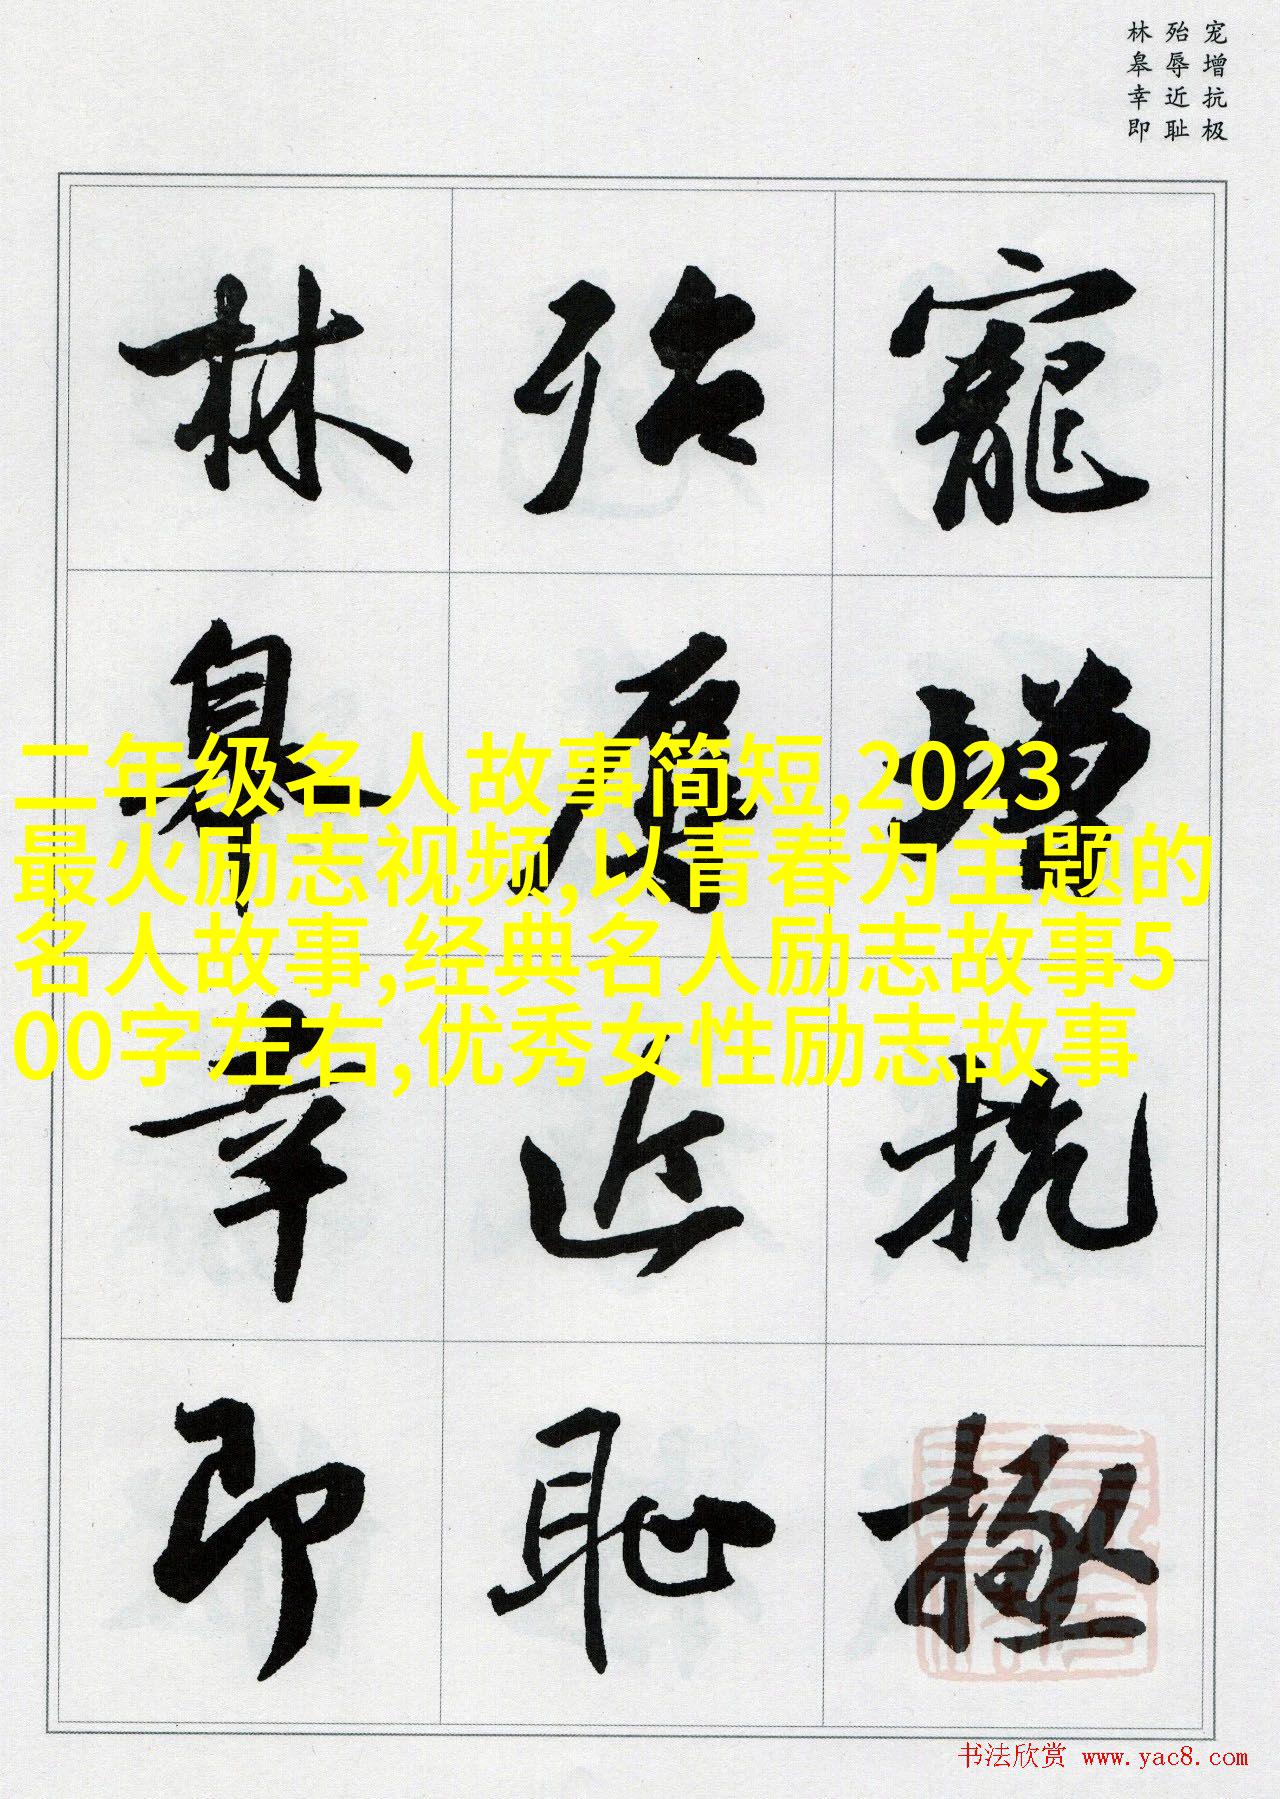 宠增抗极
殆辱近耻
林皋幸即
寵增抗極
殆辱近恥
林皋幸即
二年级名人故事简短,2023
最火励志视频,以青春为主题的
名人故事,经典名人励志故事5
00字左右,优秀女性励志故事
书法欣赏 www.yac8.com